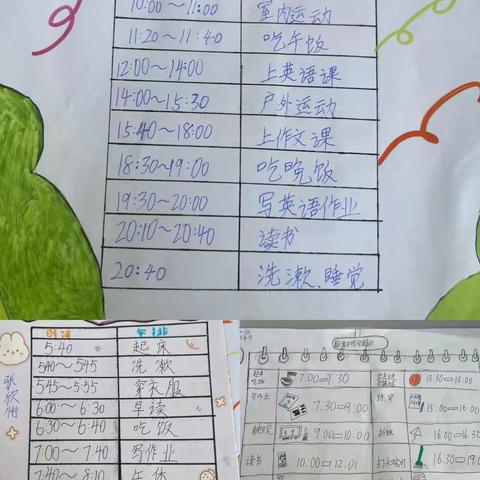 10:00～11:00 室内运动
11:20～11:40 吃午饭
12:00～14:00 上英语课
14:00～15:30 户外运动
15:40～18:00 上作文课
18:30～19:00 吃晚饭
19:30～20:00 写英语作业
20:10～20:40 读书
20:40 洗漱、睡觉
时间 安排
5:40 起床
5:40～5:45 洗漱
5:45～5:55 穿衣服
6:00～6:30 早读
6:30～6:40 吃饭
7:00～7:40 写作业
7:40～8:10 午休
张欣
起床
吃饭 7:00 7:30
13:30 15:00
写作业 7:30 9:00
练字 15:00 16:00
9:00 10:00
16:00 16:30
读书 10:00 12:01
打扫 16:30